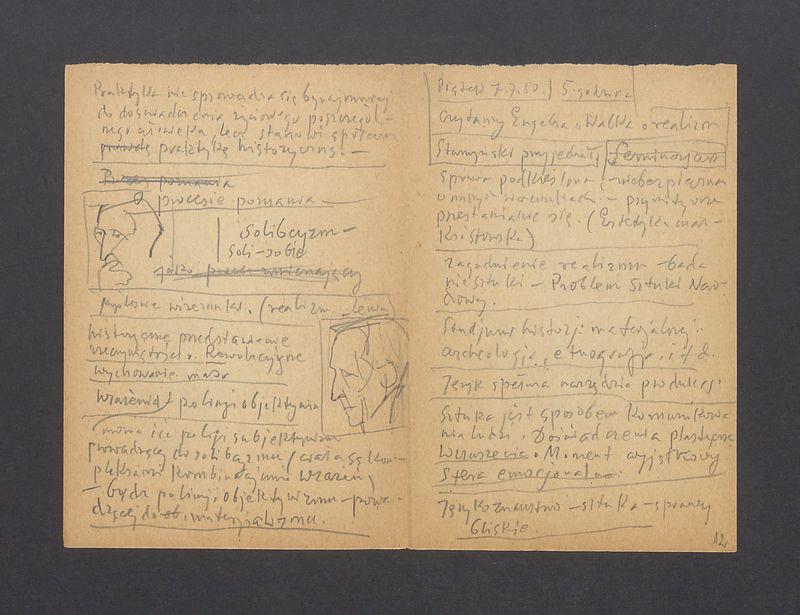 Praktyka nie sprowadza się bynajmniej
do doświadczenia życiowego poszczegól-
nego człowieka, lecz stanowi społeczną
prawdę praktykę historyczną. —
Przez poznania
procesie poznania —
Solipsyzm —
Soli-sobie
przez zmieniający
Myślowe wizerunki. (realizm Lenin)
historyczne przedstawienie
rzeczywistości. Rewolucyjne
wychowanie mas
Wrażenia i po linji objektywizm
można iść po linji subjektywizmu
prowadzącej do solipsyzmu (ciała są kom-
pleksami kombinacjami wrażeń)
— bądź po linji objektywizmu — prowa-
dzącej do materjalizmu.
Piątek 7.7.50. 5-godzina
Czytamy Engelsa "Walka o realizm
Starzyński przyjechał, Seminarjum
Sprawa podkreślona, — niebezpieczna
w naszych warunkach. —
przestanianie się. (Estetyka mar-
ksistowska)
Zagadnienie realizmu — bada
nie sztuki — Problem Sztuki Naro-
dowej.
Studjum historji materjalnej:
archeologja, etnografja, i t d.
Język spełnia narzędzie produkcji
Sztuka jest sposobem komunikowa
nia ludzi. Doświadczenia plastyczne
Wzruszenia. Moment wyjątkowy
Sfera emocjonalna.
Językoznawstwo — sztuka — sprawy
bliskie.
12